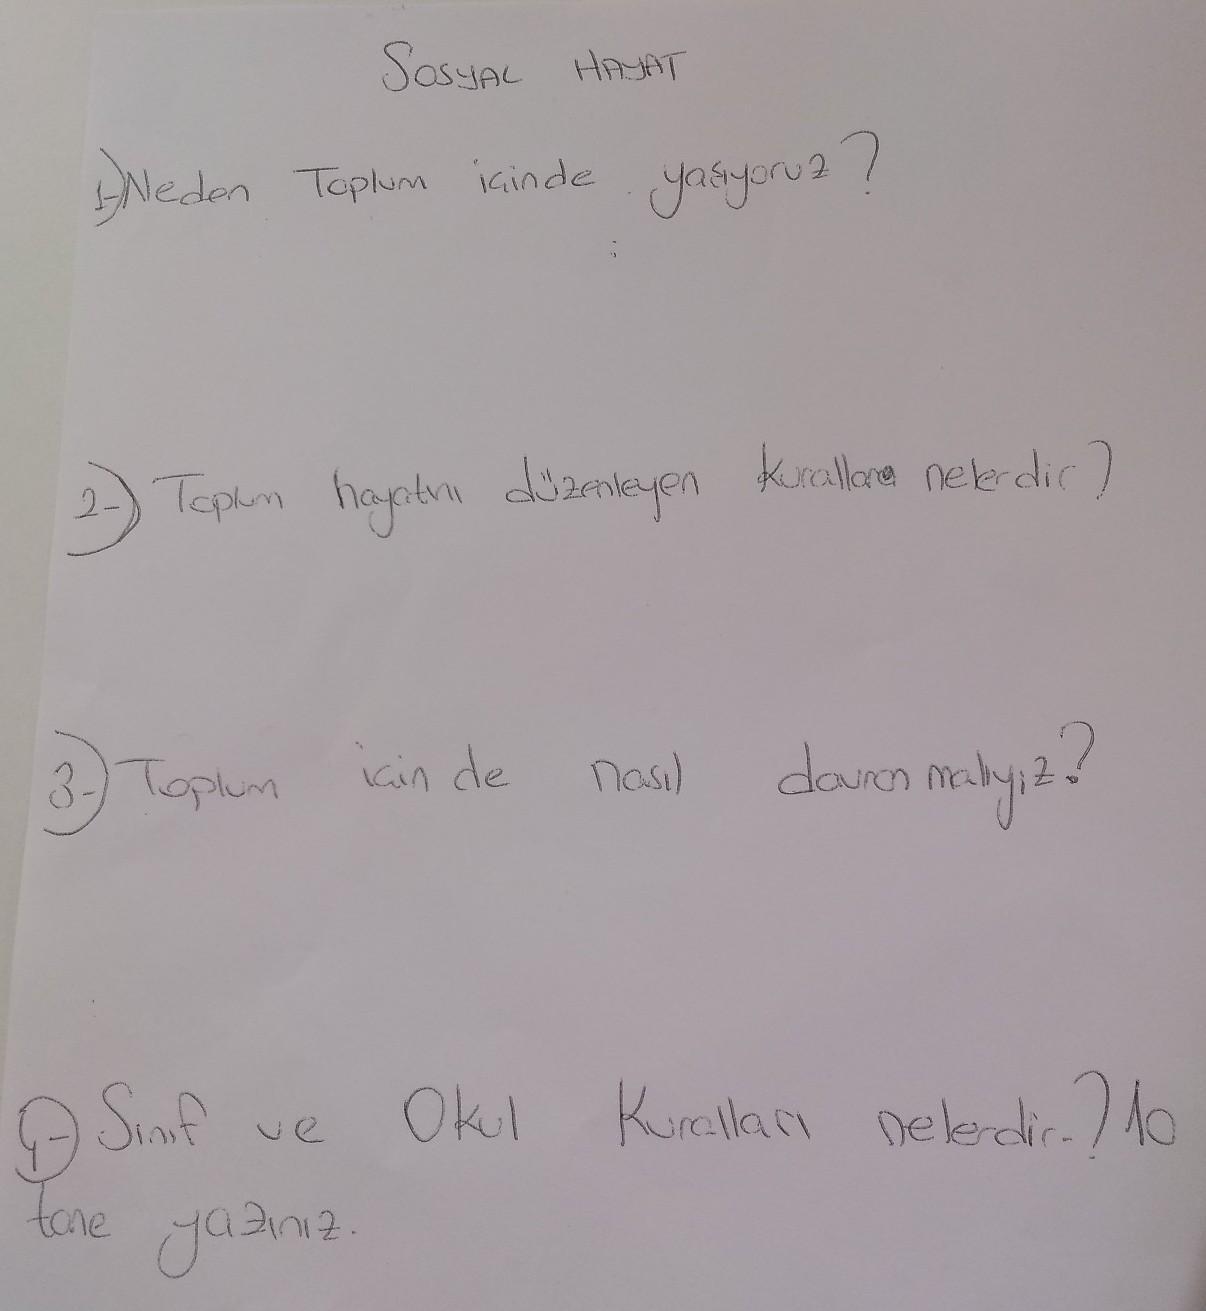 SOSYAL HAYAT
1-)Neden Toplum içinde yaşıyoruz?
2-) Toplum hayatını düzenleyen kurallar nelerdir?
3-) Toplum içinde nasıl davranmalıyız?
4-) Sınıf ve Okul Kuralları nelerdir.? 10
tane yazınız.